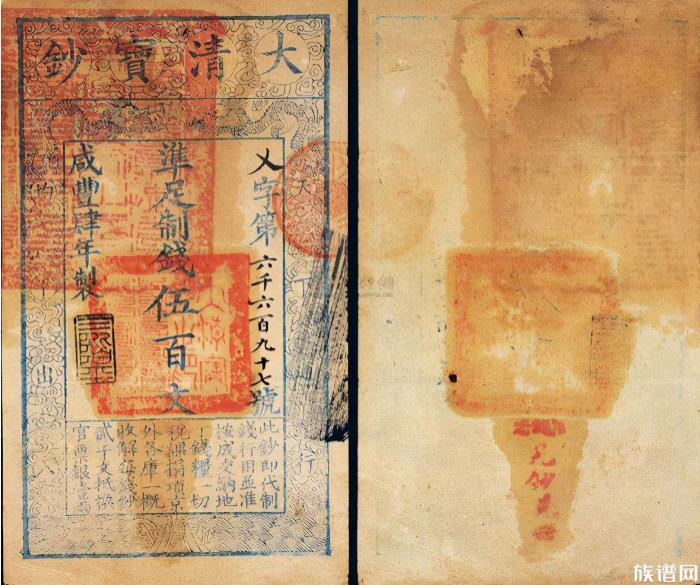 大清寶鈔
乂字第六千六百九十七號
準足制錢伍百文
咸豐肆年製
天下行
均出入
此鈔即代制
錢行用並准
按成交納地
丁錢糧一切
稅課捐項京
外各庫一概
收解每錢鈔
貳千文抵換
官票銀壹兩
族谱网